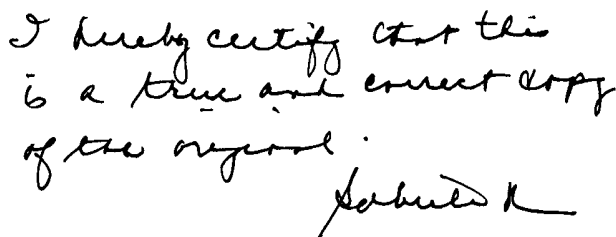 I hereby certify that this
is a true and correct copy
of the original.